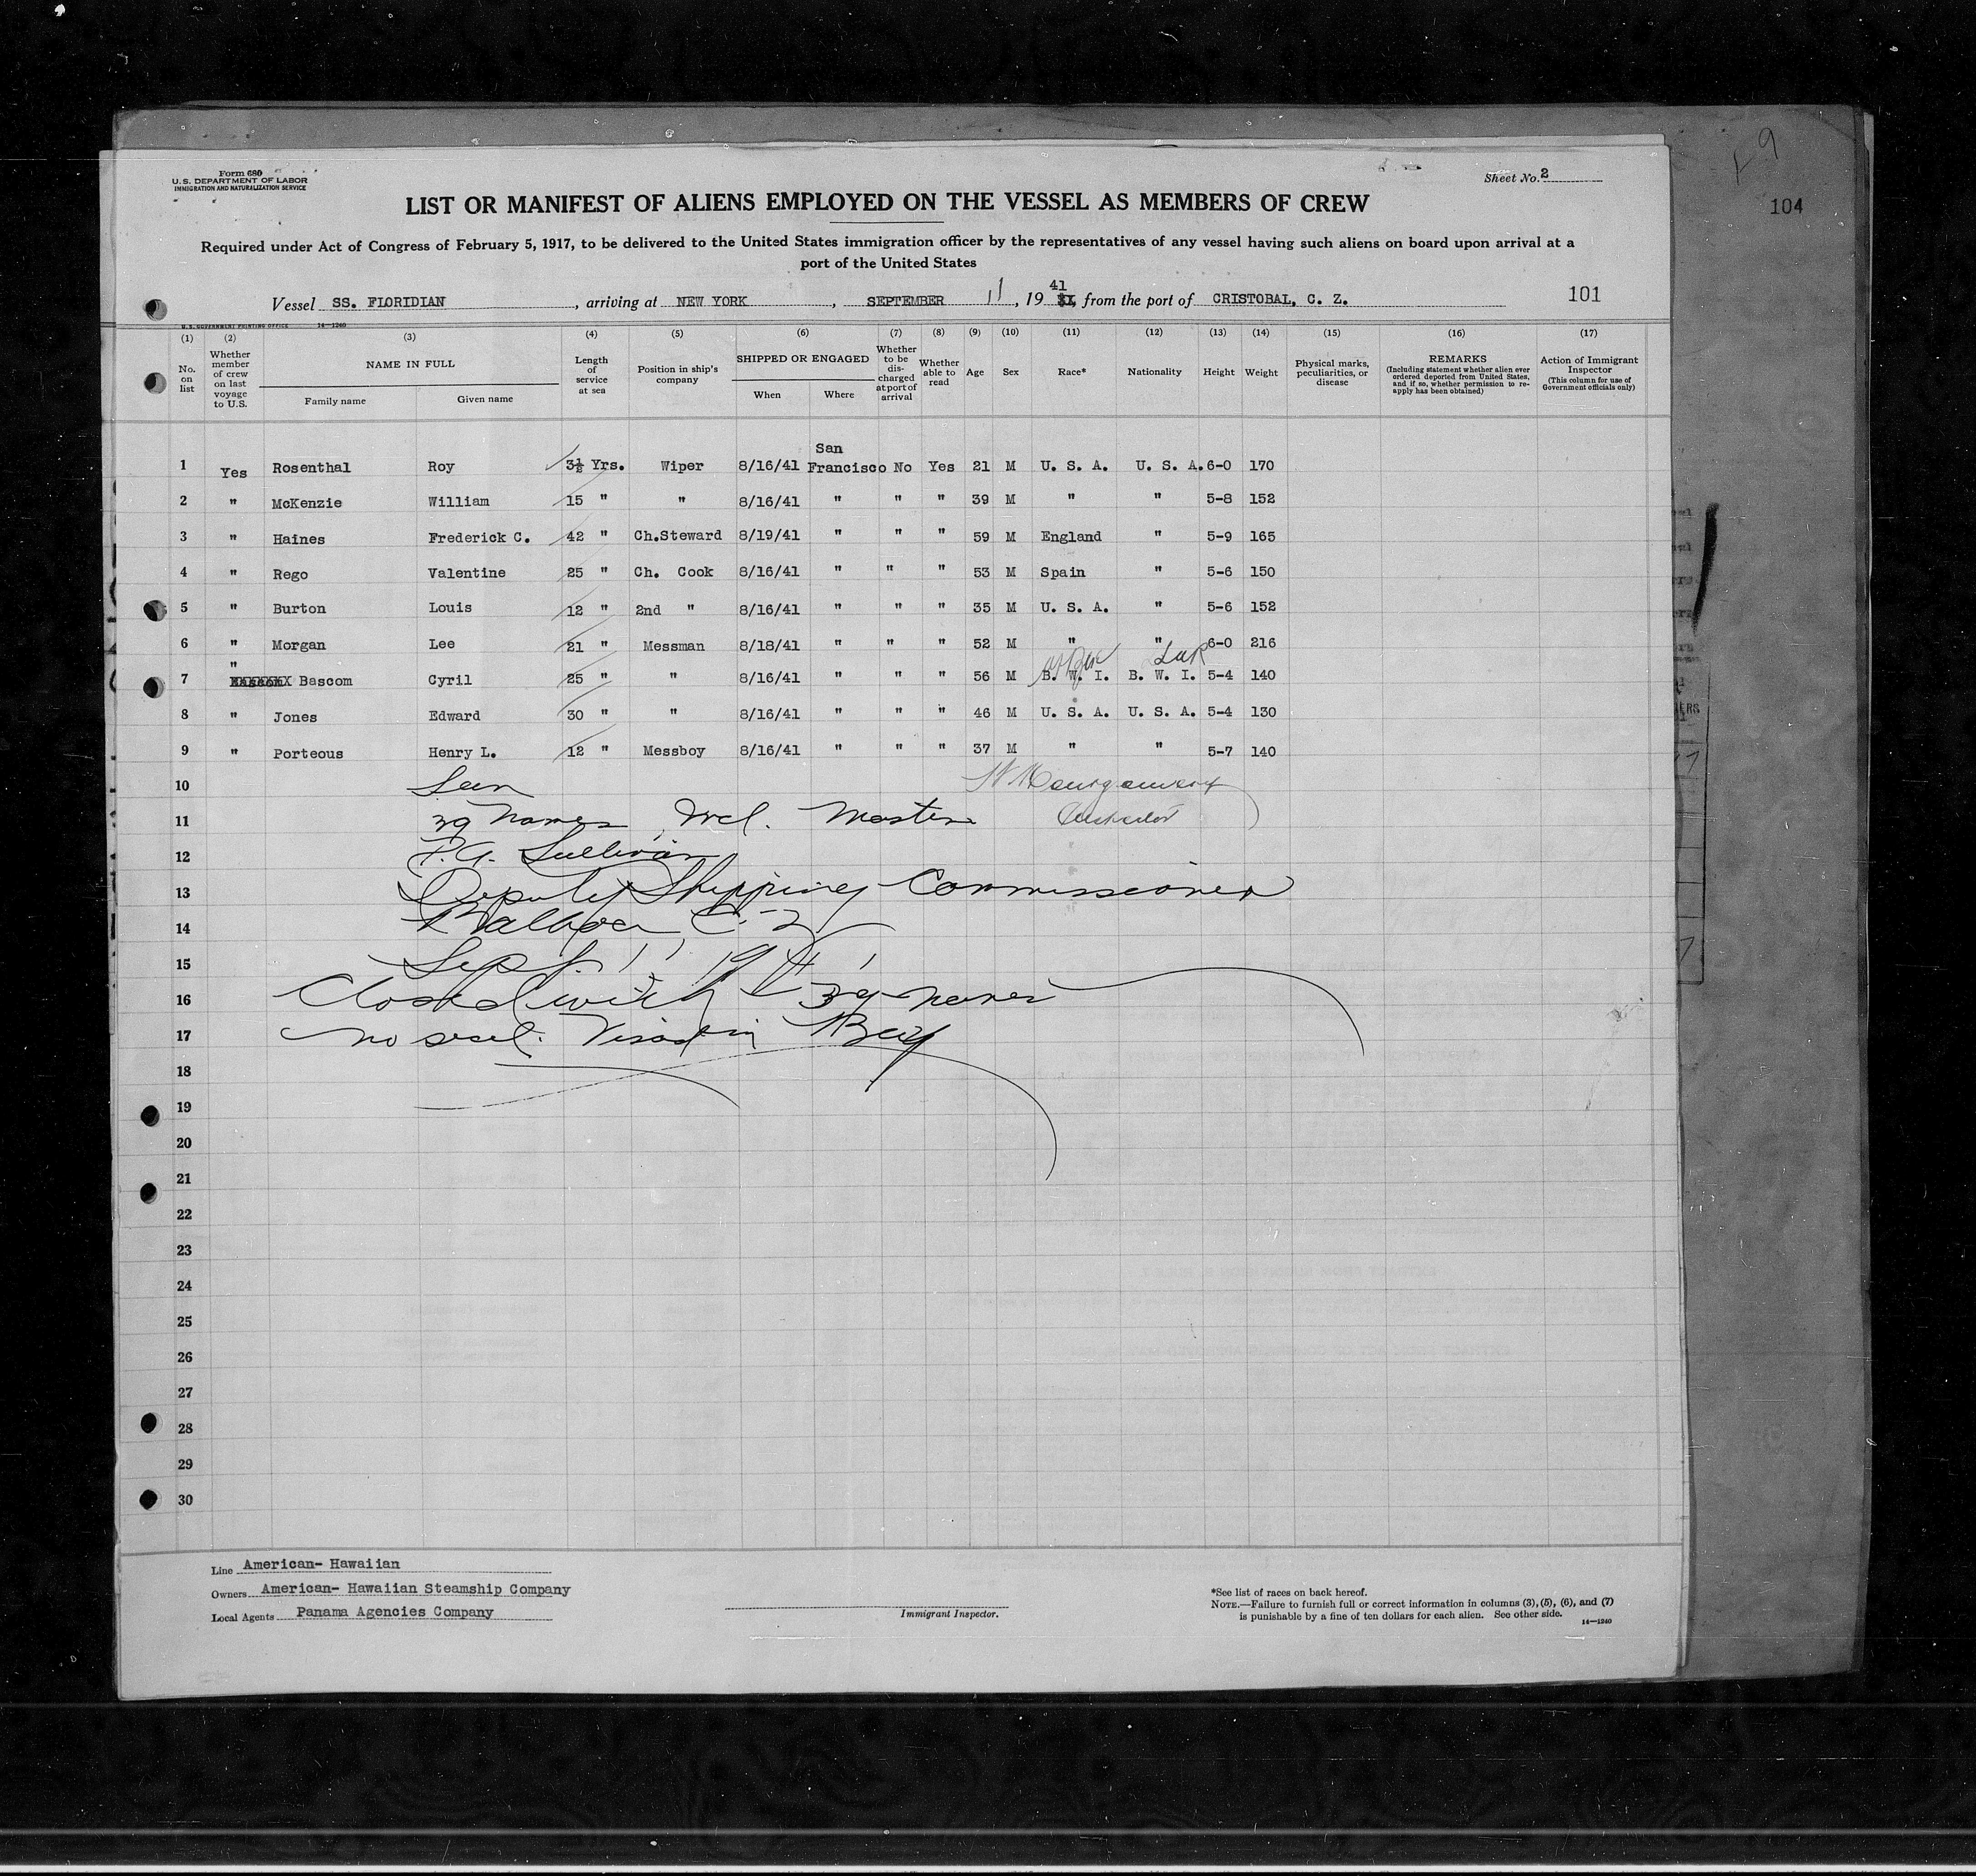 Form 680
U. S. DEPARTMENT OF LABOR
IMMIGRATION AND NATURALIZATION SERVICE
Sheet No. 2
104
LIST OR MANIFEST OF ALIENS EMPLOYED ON THE VESSEL AS MEMBERS OF CREW
Required under Act of Congress of February 5, 1917, to be delivered to the United States immigration officer by the representatives of any vessel having such aliens on board upon arrival at a
port of the United States
Vessel SS. FLORIDIAN, arriving at NEW YORK, SEPTEMBER 11, 19 41, from the port of CRISTOBAL, C. Z. 101
U. S. GOVERNMENT PRINTING OFFICE 14—1240
(1) (2) (3) (4) (5) (6) (7) (8) (9) (10) (11) (12) (13) (14) (15) (16) (17)
No. on list
Whether member of crew on last voyage to U.S.
NAME IN FULL
Family name Given name
Length of service at sea
Position in ship's company
SHIPPED OR ENGAGED
When Where
Whether to be discharged at port of arrival
Whether able to read
Age
Sex
Race*
Nationality
Height
Weight
Physical marks, peculiarities, or disease
REMARKS
(Including statement whether alien ever ordered deported from United States, and if so, whether permission to reapply has been obtained)
Action of Immigrant Inspector
(This column for use of Government officials only)
1 Yes Rosenthal Roy 3½ Yrs. Wiper 8/16/41 San Francisco No Yes 21 M U. S. A. U. S. A. 6-0 170
2 " McKenzie William 15 " " 8/16/41 " " " 39 M " " 5-8 152
3 " Haines Frederick C. 42 " Ch.Steward 8/19/41 " " " 59 M England " 5-9 165
4 " Rego Valentine 25 " Ch. Cook 8/16/41 " " " 53 M Spain " 5-6 150
5 " Burton Louis 12 " 2nd " 8/16/41 " " " 35 M U. S. A. " 5-6 152
6 " Morgan Lee 21 " Messman 8/18/41 " " " 52 M " " 6-0 216
7 " Bascom Cyril 25 " " 8/16/41 " " " 56 M B. W. I. B. W. I. 5-4 140
8 " Jones Edward 30 " " 8/16/41 " " " 46 M U. S. A. U. S. A. 5-4 130
9 " Porteous Henry L. 12 " Messboy 8/16/41 " " " 37 M " " 5-7 140
10 Seen
11 39 names Incl. Master
12 P.A. Sullivan
13 Deputy Shipping Commissioner
14 Balboa C.Z.
15 Sept. 1, 1941
16 Closed with 39 names
17 no
18
19
20
21
22
23
24
25
26
27
28
29
30
Line American- Hawaiian
Owners American- Hawaiian Steamship Company
Local Agents Panama Agencies Company
Immigrant Inspector.
*See list of races on back hereof.
NOTE.—Failure to furnish full or correct information in columns (3), (5), (6), and (7)
is punishable by a fine of ten dollars for each alien. See other side.
14—1240